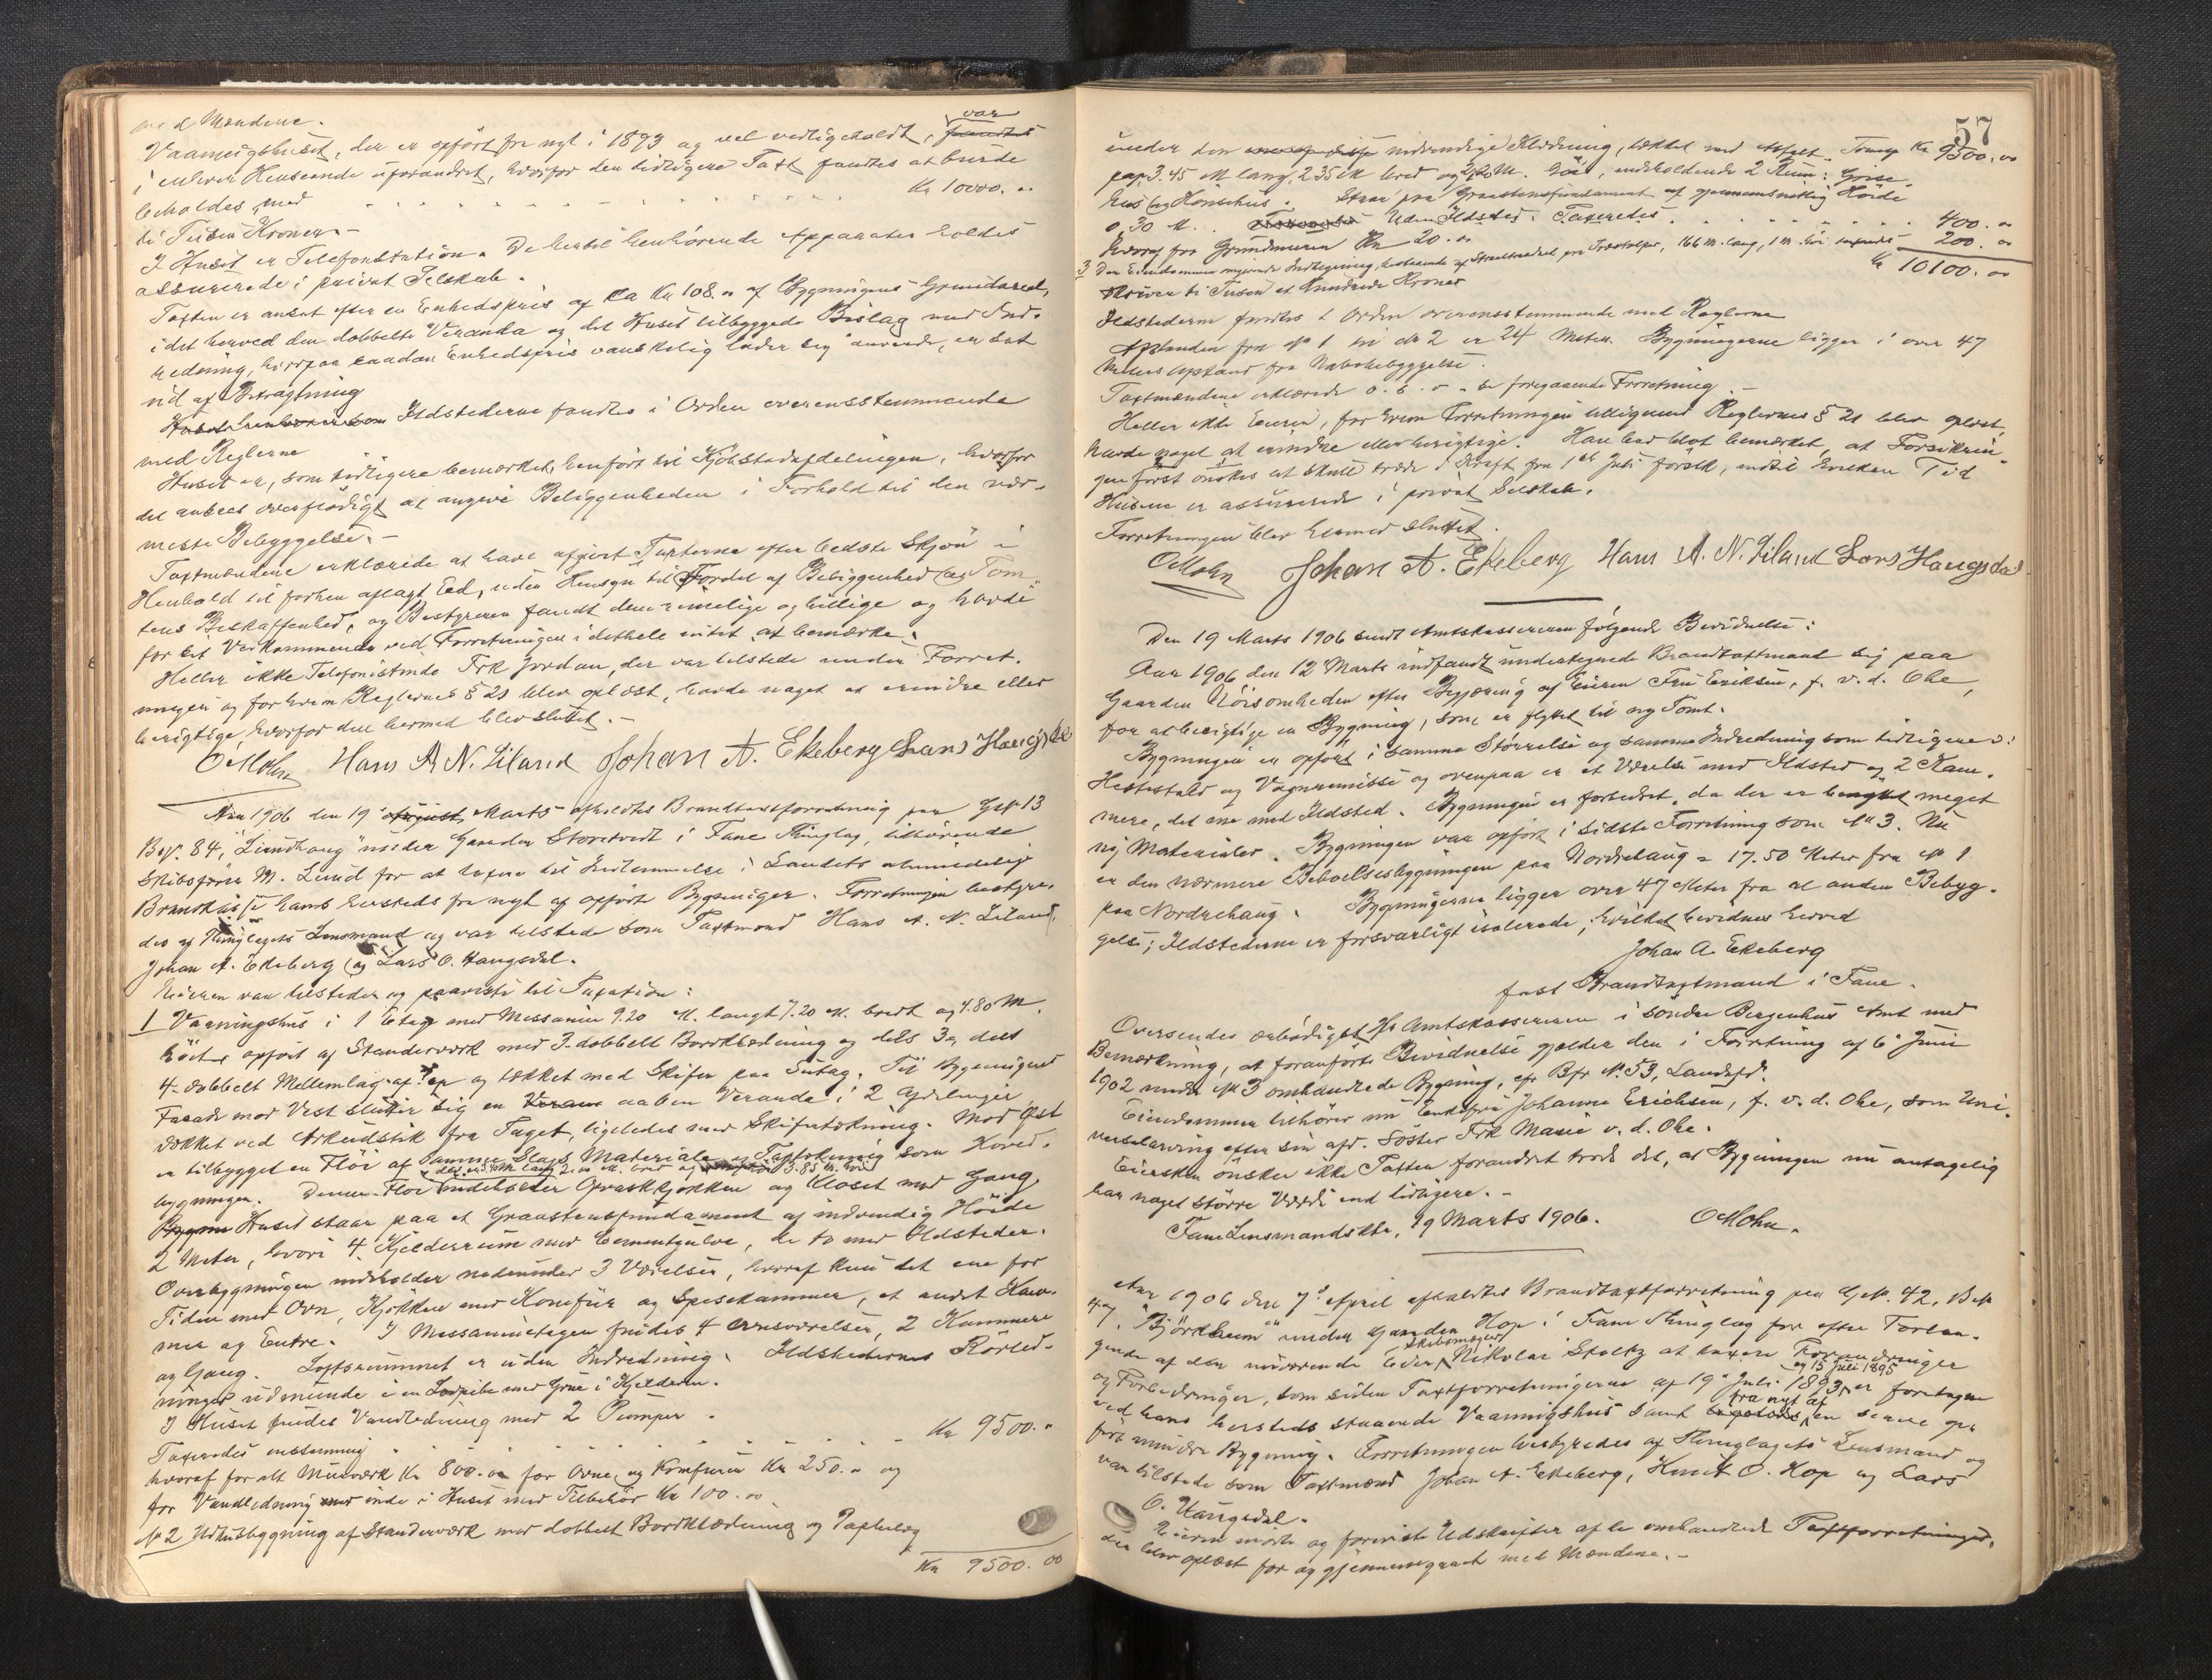 med Mændene.
Vaaningshuset, der er opført fra nyt i 1893 og vel vedligeholdt, var
i enhver Henseende uforandret, hvorfor den tidligere Taxt fandtes at burde
beholdes med Kr 10000. "
ti Tusen Kroner. -
I Huset er Telefonstation. De hertil henhørende Apparater holdes
assurerede i privat Selskab.
Taxten er ansat efter en Enhedspris af ca Kr 108. " af Bygningens Grundareal,
idet herved den dobbelte Veranda og det Huset tilbyggede Bislag med Ind-
redning, hvorpaa saadan Enhedspris vanskelig lader sig anvende, er sat
ud af Betragtning
Ildstederne fandtes i Orden overensstemmende
med Reglerne
Huset er, som tidligere bemærket, henført til Kjøbstadafdelingen, hvorfor
det ansees overflødigt at angive Beliggenheden i Forhold til den nær-
meste Bebyggelse. -
Taxtmændene erklærede at have afgivet Taxterne efter bedste Skjøn i
Henhold til forhen aflagt Ed, uden Hensyn til Fordel af Beliggenhed og Tom-
tens Beskaffenhed, og Bestyreren fandt dem rimelige og billige og havde
for sit Vedkommende ved Forretningen i dethele intet at bemærke.
Heller ikke Telefonistinde Frk Jordan, der var tilstede under Forret-
ningen og for hvem Reglernes § 21 blev oplæst, havde noget at erindre eller
berigtige, hvorfor den hermed blev sluttet. -
OMohn Hans A. N. Liland Johan A. Ekeberg Lars Haugsdal
Aar 1906 den 19 Marts afholdtes Brandtaxtforretning paa G No 13
B No. 84, "Lundhaug" under Gaarden Storetvedt i Fane Thinglag, tilhørende
Skibsfører M. Lund for at taxere til Indlemmelse i Landets almindelige
Brandkasse hans hersteds fra nyt af opførte Bygninger. Forretningen bestyre-
des af Thinglagets Lensmand og var tilstede som Taxtmænd Hans A. N. Liland,
Johan A. Ekeberg og Lars O. Haugsdal.
Eieren var tilstede og paaviste til Taxation:
1 Vaaningshus i 1 Etage med Messanin 9.20 M. langt 7.20 M. bredt og 4.80 M.
høit, opført af Standerværk med 3-dobbelt Bordklædning og dels 3 a dels
4-dobbelt Mellemlag af Pap og tækket med Skifer paa Sutag. Til Bygningens
Facade mod Vest slutter sig en aaben Veranda i 2 Afdelinger
dækket ved Arkudstik fra Taget, ligeledes med Skifertækning. Mod Øst
er tilbygget en Fløi af samme Slags Materiale og Taxtækning som Hoved-
bygningen. Denne Fløi indeholder Graskkjøkken og Kloset med Gang,
Huset staar paa et Graastensfundament af indvendig Høide
2 Meter, hvori 4 Kjelderrum med Cementgulve, de to med Ildsteder.
Overbygningen indeholder nedenunder 3 Værelser, hvoraf kun det ene for
Tiden med Ovn, Kjøkken med Komfur og Spisekammer, et andet Kam-
mer og Entre. I Messaninetagen findes 4 Ovnsværelser, 2 Kammere
og Gang. Loftsrummet er uden Indredning. Ildstedernes Rørled-
ninger udmunde i en Lodpibe med Grue i Kjelderen.
I Huset findes Vandledning med 2 Pumper.
Taxeredes enstemmig Kr 9500. "
hvoraf for alt Murværk Kr 800. oo for Ovne og Komfurer Kr 250. " og
for Vandledning inde i Huset med Tilbehør Kr 100. oo
No 2 Udhusbygning af Standerværk med dobbelt Bordklædning og Paplag
Kr 9500. 00
57
under den indvendige Klædning, tækket med Asfalt- Transp Kr 9500. oo
pap, 3.45 M lang, 2.35 M. bred og 2.20 M. høi, indeholdende 2 Rum:
hus og Hønsehus. Staar paa Graastensfundament af gjennemsnitlig Høide
0,30 M. Uden Ildsted. Taxeredes 400. "
Hvoraf for Grundmuren Kr 20. oo
3 Den Eiendommen omgivende Indhegning, bestaaende af Staaltraadnet paa Træstolper, 166 M. lang, 1 M. høi taxeredes 200. "
Skriver ti Tusen et Hundrede Kroner Kr 10100. oo
Ildstederne fandtes i Orden overensstemmende med Reglerne
Afstanden fra No 1 til do 2 er 24 Meter. Bygningerne ligger i over 47
Meters Afstand fra Nabobebyggelse.
Taxtmændene erklærede o. s. v. se foregaaende Forretning. -
Heller ikke Eieren, for hvem Forretningen tilligemed Reglernes § 21 blev oplæst,
havde noget at erindre eller berigtige. Han har blot bemærket, at Forsikrin-
gen først ønskes at skulle træde i Kraft fra 1ste Juli førstk, indtil hvilken Tid
Husene er assurerede i privat Selskab.
Forretningen blev hermed sluttet.
OMohn Johan A. Ekeberg Hans A. N. Liland Lars Haugsdal
Den 19 Marts 1906 sendt Amtskassereren følgende Bevidnelse:
Aar 1906 den 12 Marts indfandt undertegnede Brandtaxtmand sig paa
Gaarden efter Begjæring af Eieren Fru Eriksen, f. v. d. Ohe,
for at besigtige en Bygning, som er flyttet til ny Tomt.
Bygningen er opført i samme Størrelse og samme Indredning som tidligere o:
Hestestald og Vognremisse og ovenpaa er et Værelse med Ildsted og 2 Kam-
mere, det ene med Ildsted. Bygningen er forbedret, da der er benyttet meget
ny Materialer. Bygningen var opført i sidste Forretning som No 3. Nu
er den nærmere Beboelsesbygningen paa Nordrehaug = 17.50 Meter fra No 1
paa Nordrehaug. Bygningerne ligger over 47 Meter fra al anden Bebyg-
gelse; Ildstederne er forsvarligt isolerede, hvilket bevidnes herved
Johan A. Ekeberg
fast Brandtaxtmand i Fane.
Oversendes ærbødigst Hr Amtskassereren i søndre Bergenhus Amt med
Bemærkning, at foranførte Bevidnelse gjelder den i Forretning af 6 Juni
1902 under No 3 omhandlede Bygning, cfr Bfr No. 53, Landafd.
Eiendommen tilhører nu Enkefru Johanne Erichsen, f. v. d. Ohe, som Uni-
versalarving efter sin afd. Søster Frk Marie v. d. Ohe.
Eiersken ønsker ikke Taxten forandret trods det, at Bygningen nu antagelig
har noget større Værdi end tidligere. -
Fane Lensmandsktr., 19 Marts 1906. OMohn.
Aar 1906 den 7 April afholdtes Brandtaxtforretning paa G No. 42, B No
47, "Bjørkheim" under Gaarden Hop i Fane Thinglag for efter Forlan-
gende af den nuværende Eier, Skibsmægler Nikolai Stoltz at taxere Forandringer
og Forbedringer, som siden Taxtforretningerne af 19 Juli 1893 og 15 Juli 1895 er foretagne
ved hans hersteds staaende Vaaningshus samt en fra nyt af senere op-
ført mindre Bygning. Forretningen bestyredes af Thinglagets Lensmand og
var tilstede som Taxtmænd Johan A. Ekeberg, Knut O. Hop og Lars
O. Haugsdal.
Eieren mødte og foreviste Udskrifter af de omhandlede Taxtforretninger,
der blev oplæst for og gjennemgaaet med Mændene. -